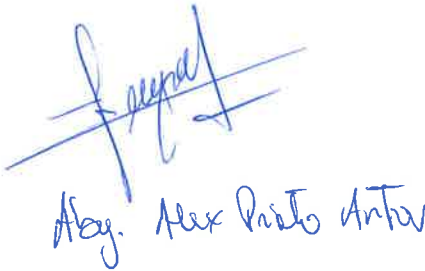 Abg. Alex Prieto Antov